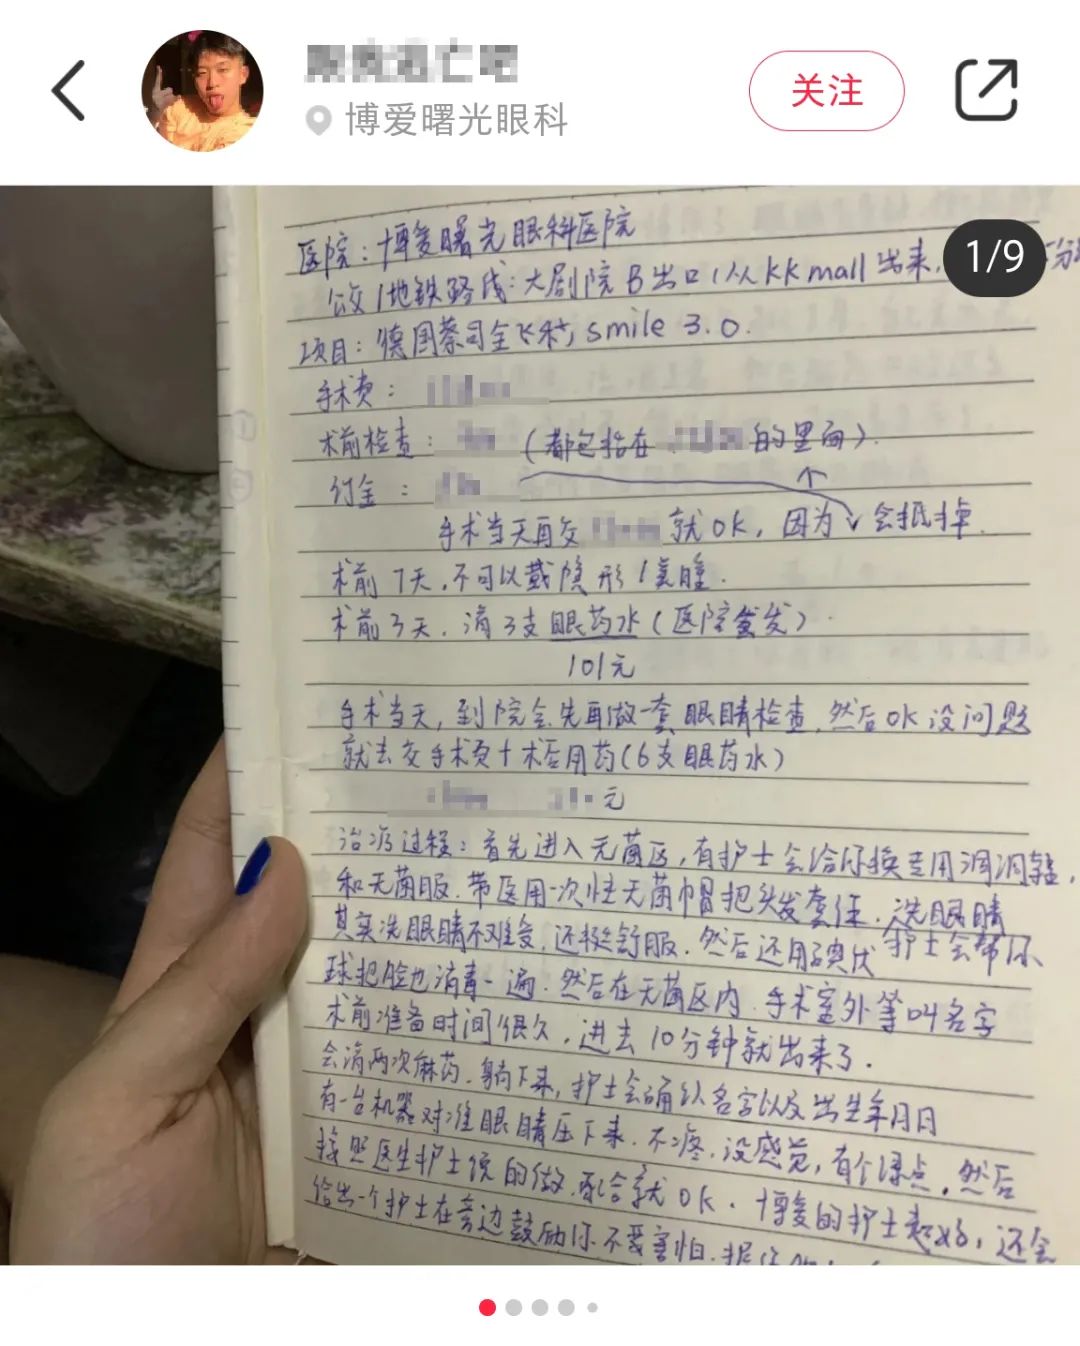 博爱曙光眼科
关注
1/9
医院：博爱曙光眼科医院
公交/地铁路线：大剧院B出口(从KKmall出来，
项目：德国蔡司全飞秒，smile 3.0.
手术费：
术前检查： (都包括在 的里面).
订金：
手术当天再交 就OK，因为 会抵掉.
术前7天，不可以戴隐形
术前3天，滴3支眼药水(医院会发).
101元
手术当天，到院会先再做一套眼睛检查，然后OK没问题
就去交手术费+术后用药(6支眼药水)
元
治疗过程：首先进入无菌区，有护士会给你换专用
和无菌服，带医用一次性无菌帽把头发套住，洗眼睛
其实洗眼睛不难受，还挺舒服，然后还用碘伏 护士会帮你
球把脸也消毒一遍，然后在无菌区内，手术室外等叫名字
术前准备时间很久，进去10分钟就出来了.
会滴两次麻药，躺下来，护士会确认名字以及出生年月日
有一台机器对准眼睛压下来，不疼，没感觉，有个绿点，然后
按照医生护士说的做，配合就OK. 博爱的护士超好，还会
给出一个护士在旁边鼓励你不要害怕.